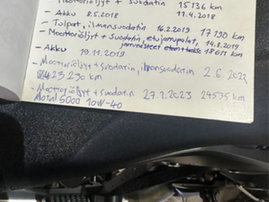 Moottoriöljyt + suodatin 15136 km
- Akku 8.5.2018 11.4.2018
- Tulpat, ilmansuodatin 16.2.2019 17190 km
- Moottoriöljyt + suodatin, etujarrupalat, 14.8.2019
jarrunesteet 18611 km
- Akku 19.11.2019
- Moottoriöljyt + suodatin, ilmansuodatin 2.6.2022
23230 km
- Moottoriöljyt + suodatin 27.7.2023 24535 km
Motul 5000 10W-40